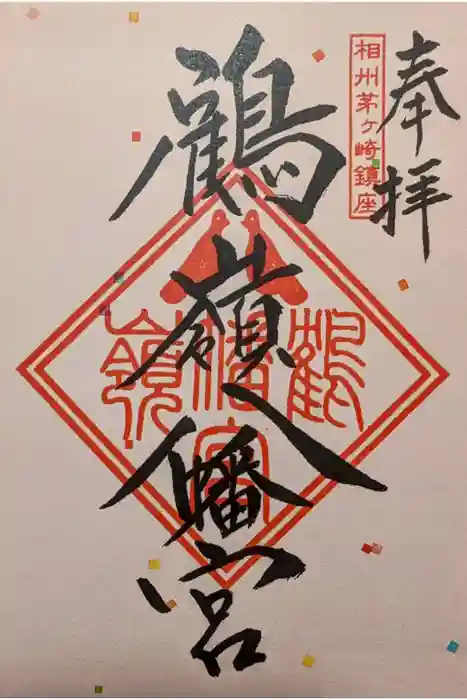 奉拝
相州茅ヶ崎鎮座
鶴嶺八幡宮
鶴
幡宮
嶺